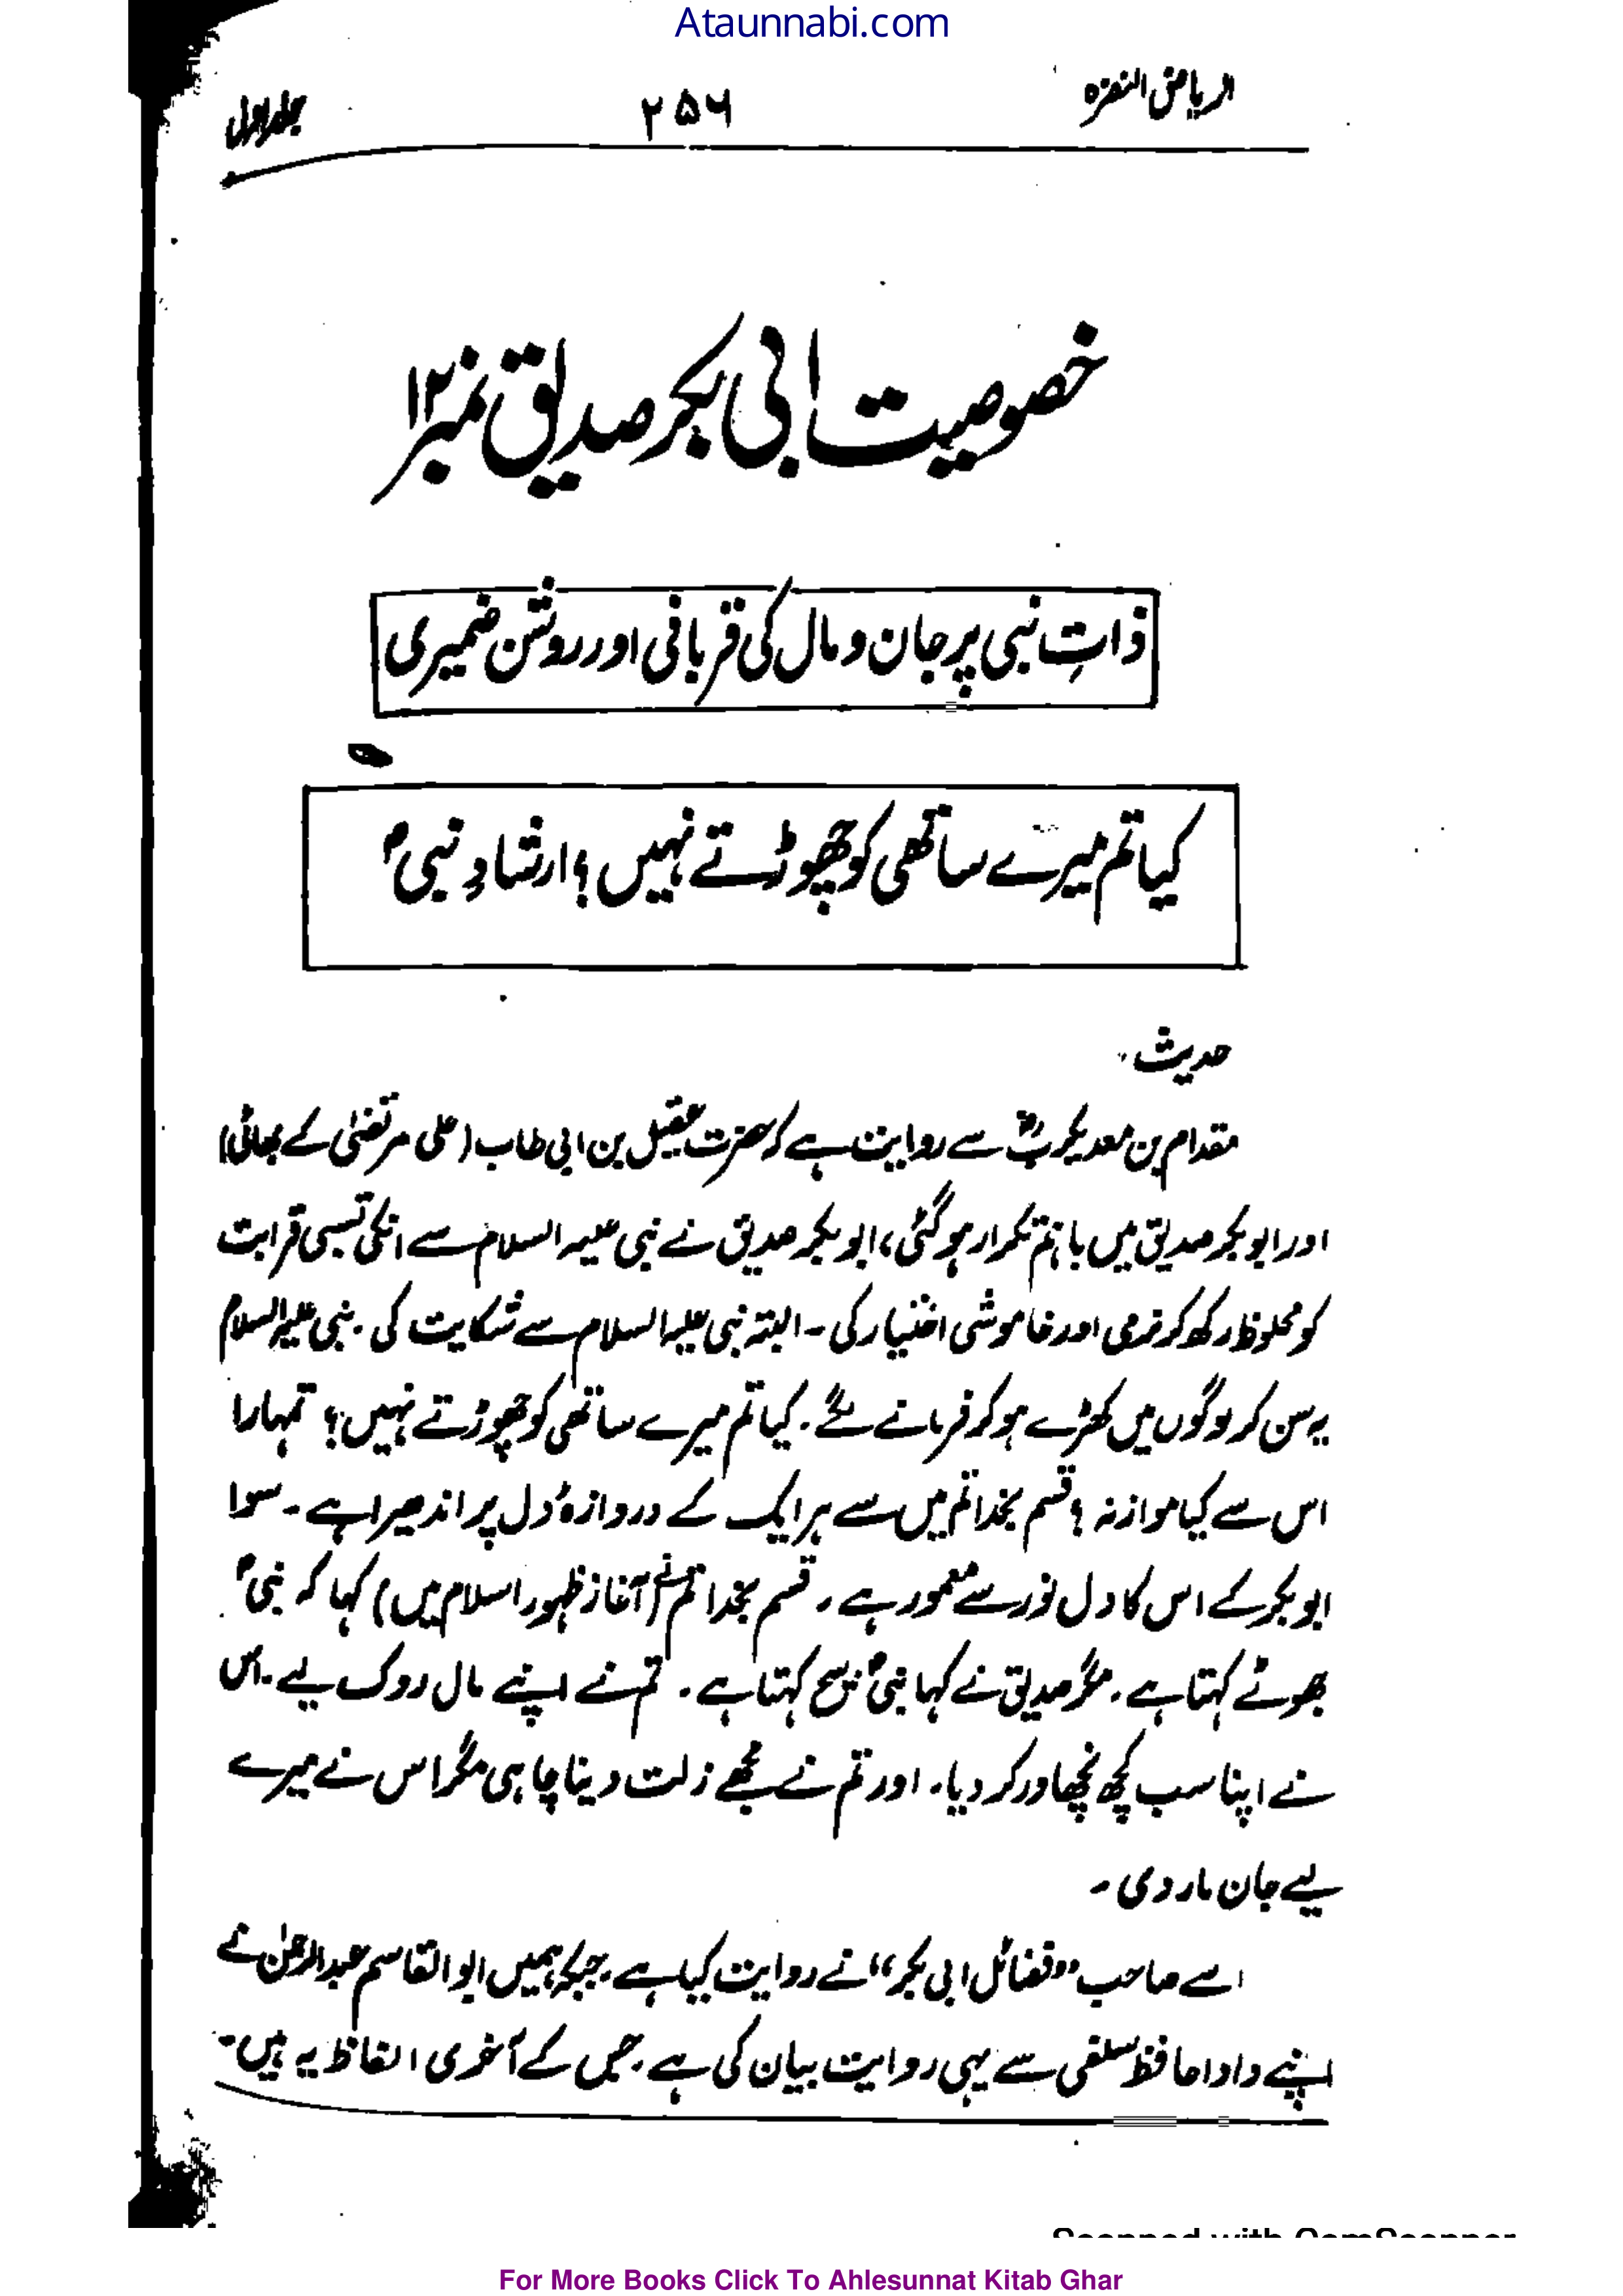 Ataunnabi.com
الریاض النضرہ ۲۵۶ جلد اول
خصوصیت ابی بکر صدیق نمبر ۱۲
ذاتِ نبی پر جان و مال کی قربانی اور روشن ضمیری
کیا تم میرے ساتھی کو چھوڑتے نہیں؟ ارشادِ نبیؐ
حدیث۔
مقدام بن معدیکربؓ سے روایت ہے کہ حضرت عقیل بن ابی طاب (علی مرتضیٰ کے بھائی)
اور ابوبکر صدیق میں باہم تکرار ہو گئی، ابوبکر صدیق نے نبی علیہ السلام سے انکی نسبی قرابت
کو ملحوظ رکھ کر نرمی اور خاموشی اختیار کی۔ البتہ نبی علیہ السلام سے شکایت کی۔ نبی علیہ السلام
یہ سن کر لوگوں میں کھڑے ہو کر فرمانے لگے۔ کیا تم میرے ساتھی کو چھوڑتے نہیں؟ تمہارا
اس سے کیا موازنہ؟ قسم بخدا تم میں سے ہر ایک کے دروازۂ دل پر اندھیرا ہے۔ سوا
ابوبکر کے اس کا دل نور سے معمور ہے۔ قسم بخدا تم نے (آغاز ظہور اسلام میں) کہا کہ نبیؐ
جھوٹ کہتا ہے۔ مگر صدیق نے کہا نبیؐ سچ کہتا ہے۔ تم نے اپنے مال روک لیے۔ اس
نے اپنا سب کچھ نچھاور کر دیا۔ اور تم نے مجھے ذلت دینا چاہی مگر اس نے میرے
لیے جان مار دی۔
اسے صاحب "فضائل ابی بکر" نے روایت کیا ہے۔ جبکہ ہمیں ابوالقاسم عبدالرحمٰن نے
اپنے دادا حافظ سلفی سے یہی روایت بیان کی ہے۔ جس کے آخری الفاظ یہ ہیں۔
Scanned with CamScanner
For More Books Click To Ahlesunnat Kitab Ghar